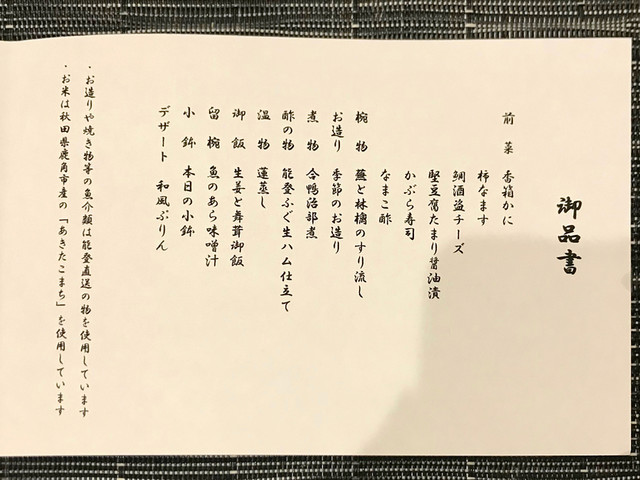 御品書
前菜 香箱かに
柿なます
鯛酒盗チーズ
堅豆腐たまり醤油漬
かぶら寿司
なまこ酢
椀物 蕪と林檎のすり流し
お造り 季節のお造り
煮物 合鴨治部煮
酢の物 能登ふぐ生ハム仕立て
温物 蓮蒸し
御飯 生姜と舞茸御飯
留椀 魚のあら味噌汁
小鉢 本日の小鉢
デザート 和風ぷりん
・お造りや焼き物等の魚介類は能登直送の物を使用しています
・お米は秋田県鹿角市産の「あきたこまち」を使用しています